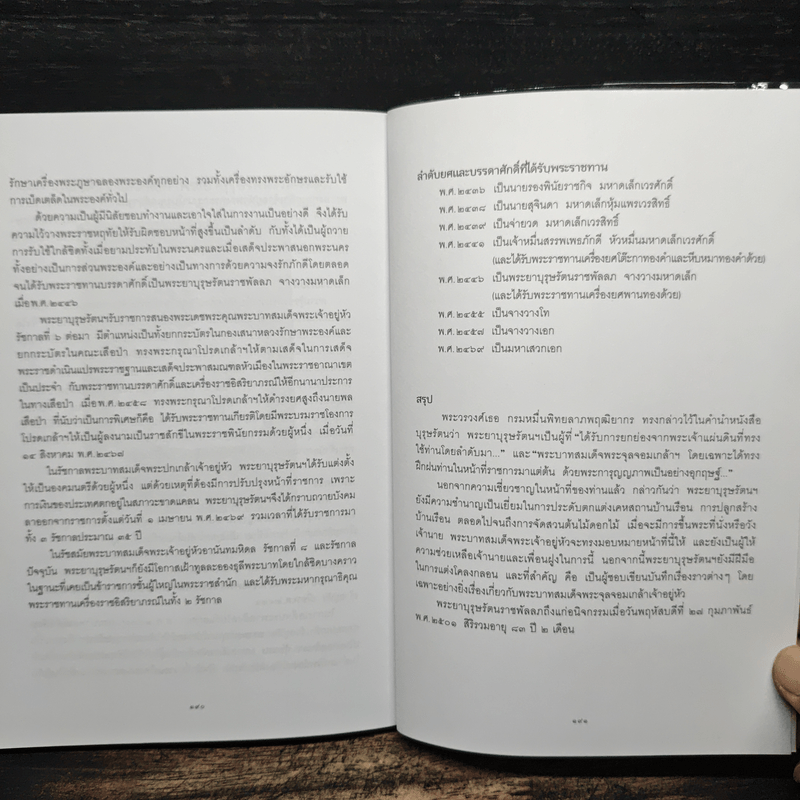 รักษาเครื่องพระภูษาฉลองพระองค์ทุกอย่าง รวมทั้งเครื่องทรงพระอักษรและรับใช้
การเบ็ดเตล็ดในพระองค์ทั่วไป
ด้วยความเป็นผู้มีนิสัยชอบทำงานและเอาใจใส่ในการงานเป็นอย่างดี จึงได้รับ
ความไว้วางพระราชหฤทัยให้รับผิดชอบหน้าที่สูงขึ้นเป็นลำดับ กับทั้งได้เป็นผู้ถวาย
การรับใช้ใกล้ชิดทั้งเมื่อยามประทับในพระนครและเมื่อเสด็จประพาสนอกพระนคร
ทั้งอย่างเป็นการส่วนพระองค์และอย่างเป็นทางการด้วยความจงรักภักดีโดยตลอด
จนได้รับพระราชทานบรรดาศักดิ์เป็นพระยาบุรุษรัตนราชพัลลภ จางวางมหาดเล็ก
เมื่อพ.ศ.๒๔๔๖
พระยาบุรุษรัตนฯรับราชการสนองพระเดชพระคุณพระบาทสมเด็จพระเจ้าอยู่หัว
รัชกาลที่ ๖ ต่อมา มีตำแหน่งเป็นทั้งยกกระบัตรในกองเสนาหลวงรักษาพระองค์และ
ยกกระบัตรในคณะเสือป่า ทรงพระกรุณาโปรดเกล้าฯให้ตามเสด็จในการเสด็จ
พระราชดำเนินแปรพระราชฐานและเสด็จประพาสมณฑลหัวเมืองในพระราชอาณาเขต
เป็นประจำ กับพระราชทานบรรดาศักดิ์และเครื่องราชอิสริยาภรณ์ให้อีกนานาประการ
ในทางเสือป่า เมื่อพ.ศ.๒๔๕๘ ทรงพระกรุณาโปรดเกล้าฯให้ดำรงยศสูงถึงนายพล
เสือป่า ที่นับว่าเป็นการพิเศษก็คือ ได้รับพระราชทานเกียรติโดยมีพระบรมราชโองการ
โปรดเกล้าฯให้เป็นผู้ลงนามเป็นราชสักขีในพระราชพินัยกรรมด้วยผู้หนึ่ง เมื่อวันที่
๑๔ สิงหาคม พ.ศ.๒๔๖๗
ในรัชกาลพระบาทสมเด็จพระปกเกล้าเจ้าอยู่หัว พระยาบุรุษรัตนฯได้รับแต่งตั้ง
ให้เป็นองคมนตรีด้วยผู้หนึ่ง แต่ด้วยเหตุที่ต้องมีการปรับปรุงหน้าที่ราชการ เพราะ
การเงินของประเทศตกอยู่ในสภาวะขาดแคลน พระยาบุรุษรัตนฯจึงได้กราบถวายบังคม
ลาออกจากราชการตั้งแต่วันที่ ๑ เมษายน พ.ศ.๒๔๖๙ รวมเวลาที่ได้รับราชการมา
ทั้ง ๓ รัชกาลประมาณ ๓๕ ปี
ในรัชสมัยพระบาทสมเด็จพระเจ้าอยู่หัวอานันทมหิดล รัชกาลที่ ๘ และรัชกาล
ปัจจุบัน พระยาบุรุษรัตนฯก็ยังมีโอกาสเฝ้าทูลละอองธุลีพระบาทโดยใกล้ชิดบางคราว
ในฐานะที่เคยเป็นข้าราชการชั้นผู้ใหญ่ในพระราชสำนัก และได้รับพระมหากรุณาธิคุณ
พระราชทานเครื่องราชอิสริยาภรณ์ในทั้ง ๒ รัชกาล
๑๙๐
ลำดับยศและบรรดาศักดิ์ที่ได้รับพระราชทาน
พ.ศ.๒๔๓๖ เป็นนายรองพินัยราชกิจ มหาดเล็กเวรศักดิ์
พ.ศ.๒๔๓๘ เป็นนายสุจินดา มหาดเล็กหุ้มแพรเวรสิทธิ์
พ.ศ.๒๔๓๙ เป็นจ่ายวด มหาดเล็กเวรสิทธิ์
พ.ศ.๒๔๔๑ เป็นเจ้าหมื่นสรรพเพธภักดี หัวหมื่นมหาดเล็กเวรศักดิ์
(และได้รับพระราชทานเครื่องยศโต๊ะกาทองคำและหีบหมาทองคำด้วย)
พ.ศ.๒๔๔๖ เป็นพระยาบุรุษรัตนราชพัลลภ จางวางมหาดเล็ก
(และได้รับพระราชทานเครื่องยศพานทองด้วย)
พ.ศ.๒๔๕๕ เป็นจางวางโท
พ.ศ.๒๔๕๗ เป็นจางวางเอก
พ.ศ.๒๔๖๙ เป็นมหาเสวกเอก
สรุป
พระวรวงศ์เธอ กรมหมื่นพิทยลาภพฤฒิยากร ทรงกล่าวไว้ในคำนำหนังสือ
บุรุษรัตนฯว่า พระยาบุรุษรัตนฯเป็นผู้ที่ "ได้รับการยกย่องจากพระเจ้าแผ่นดินที่ทรง
ใช้ท่านโดยลำดับมา..." และ "พระบาทสมเด็จพระจุลจอมเกล้าฯ โดยเฉพาะได้ทรง
ฝึกฝนท่านในหน้าที่ราชการมาแต่ต้น ด้วยพระการุญญภาพเป็นอย่างอุกฤษฎ์..."
นอกจากความเชี่ยวชาญในหน้าที่ของท่านแล้ว กล่าวกันว่า พระยาบุรุษรัตนฯ
ยังมีความชำนาญเป็นเยี่ยมในการประดับตกแต่งเคหสถานบ้านเรือน การปลูกสร้าง
บ้านเรือน ตลอดไปจนถึงการจัดสวนต้นไม้ดอกไม้ เมื่อจะมีการขึ้นพระที่นั่งหรือวัง
เจ้านาย พระบาทสมเด็จพระเจ้าอยู่หัวจะทรงมอบหมายหน้าที่นี้ให้ และยังเป็นผู้ให้
ความช่วยเหลือเจ้านายและเพื่อนฝูงในการนี้ นอกจากนี้พระยาบุรุษรัตนฯยังมีฝีมือ
ในการแต่งโคลงกลอน และที่สำคัญ คือ เป็นผู้ชอบเขียนบันทึกเรื่องราวต่างๆ โดย
เฉพาะอย่างยิ่งเรื่องเกี่ยวกับพระบาทสมเด็จพระจุลจอมเกล้าเจ้าอยู่หัว
พระยาบุรุษรัตนราชพัลลภถึงแก่อนิจกรรมเมื่อวันพฤหัสบดีที่ ๒๗ กุมภาพันธ์
พ.ศ.๒๕๐๑ สิริรวมอายุ ๘๓ ปี ๒ เดือน
๑๙๑